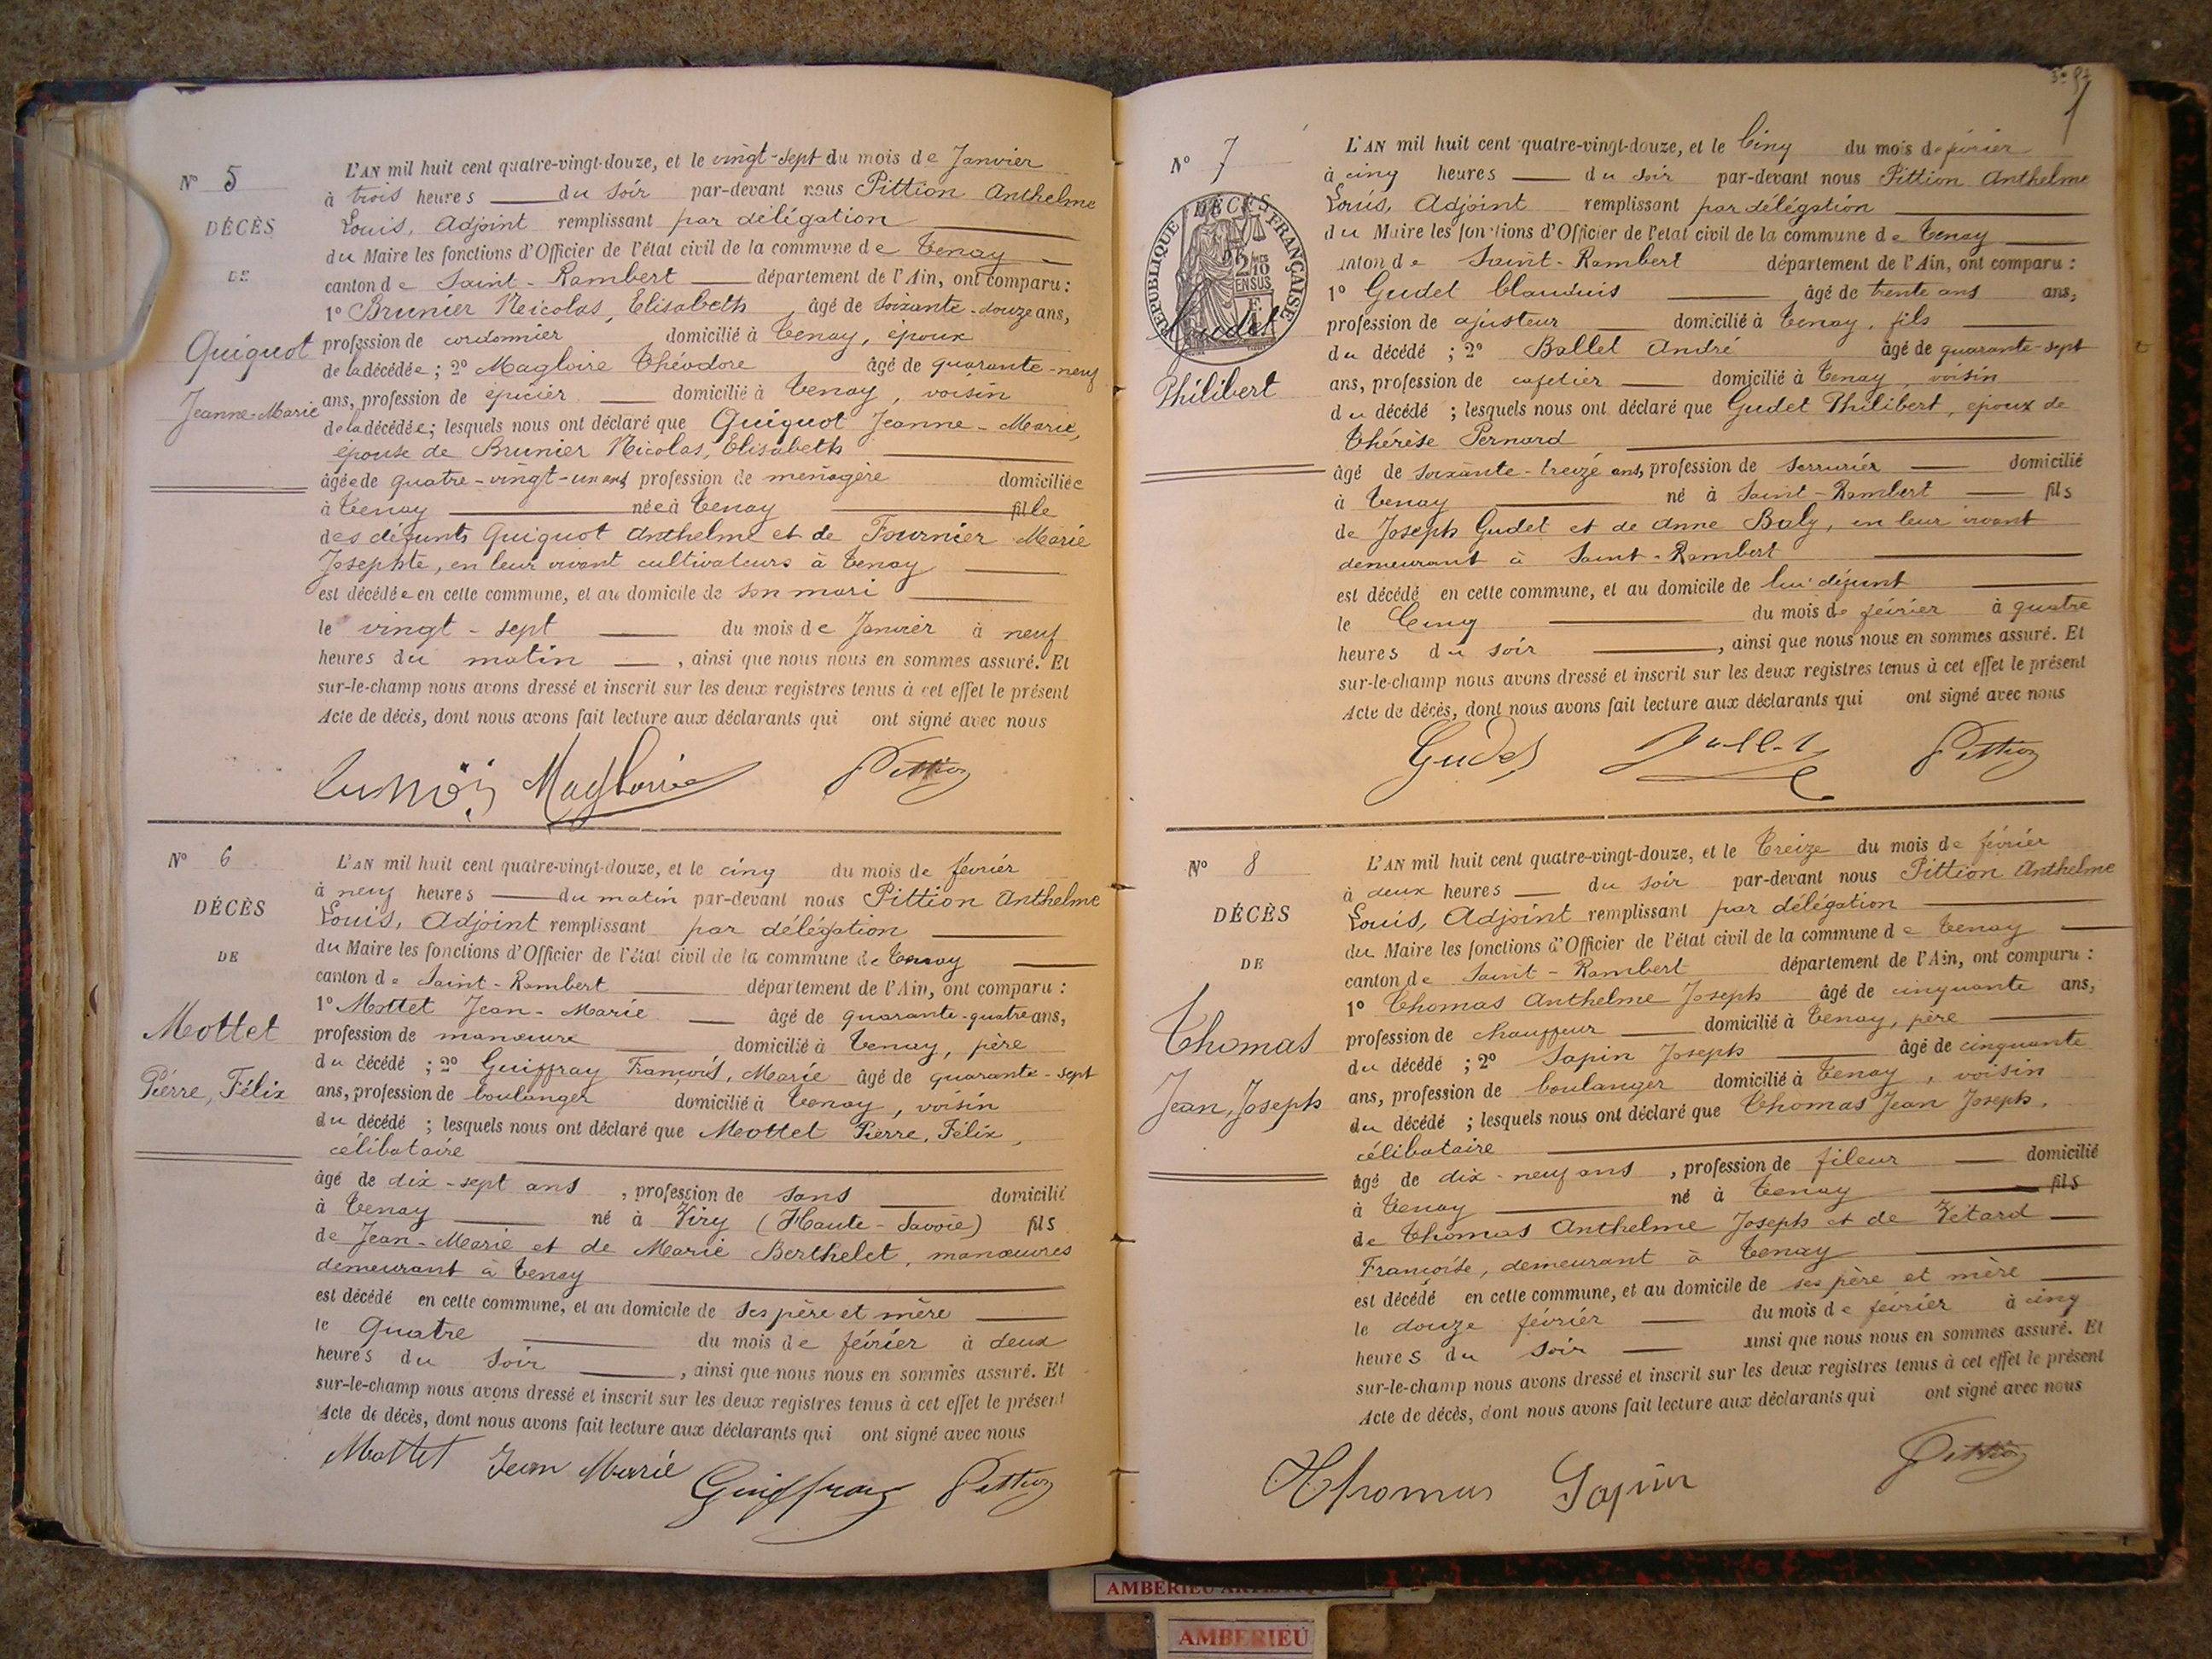 N° 5
DÉCÈS
DE
Quiquot
Jeanne-Marie
L'AN mil huit cent quatre-vingt-douze, et le vingt-sept du mois de Janvier
à trois heures du soir par-devant nous Pittion Anthelme
Louis, Adjoint remplissant par délégation
du Maire les fonctions d'Officier de l'état civil de la commune de Tenay
canton de Saint-Rambert département de l'Ain, ont comparu :
1° Brunier Nicolas, Elisabeth, âgé de soixante-douze ans,
profession de cordonnier domicilié à Tenay, époux
de la décédée ; 2° Magloire Théodore âgé de quarante-neuf
ans, profession de épicier domicilié à Tenay, voisin
de la décédée ; lesquels nous ont déclaré que Quiquot Jeanne-Marie,
épouse de Brunier Nicolas, Elisabeth
âgée de quatre-vingt-un ans, profession de ménagère domiciliée
à Tenay née à Tenay fille
des défunts Quiquot Anthelme et de Fournier Marie
Josephte, en leur vivant cultivateurs à Tenay
est décédée en cette commune, et au domicile de son mari
le vingt-sept du mois de Janvier à neuf
heures du matin, ainsi que nous nous en sommes assuré. Et
sur-le-champ nous avons dressé et inscrit sur les deux registres tenus à cet effet le présent
Acte de décès, dont nous avons fait lecture aux déclarants qui ont signé avec nous
Magloire Pittion
N° 6
DÉCÈS
DE
Mottet
Pierre, Félix
L'AN mil huit cent quatre-vingt-douze, et le cinq du mois de février
à neuf heures du matin par-devant nous Pittion Anthelme
Louis, Adjoint remplissant par délégation
du Maire les fonctions d'Officier de l'état civil de la commune de Tenay
canton de Saint-Rambert département de l'Ain, ont comparu :
1° Mottet Jean-Marie âgé de quarante-quatre ans,
profession de manœuvre domicilié à Tenay, père
du décédé ; 2° Guiffray François, Marie âgé de quarante-sept
ans, profession de boulanger domicilié à Tenay, voisin
du décédé ; lesquels nous ont déclaré que Mottet Pierre, Félix,
célibataire
âgé de dix-sept ans, profession de sans domicilié
à Tenay né à Viry (Haute-Savoie) fils
de Jean-Marie et de Marie Berthelet, manœuvres
demeurant à Tenay
est décédé en cette commune, et au domicile de ses père et mère
le Quatre du mois de février à deux
heures du soir, ainsi que nous nous en sommes assuré. Et
sur-le-champ nous avons dressé et inscrit sur les deux registres tenus à cet effet le présent
Acte de décès, dont nous avons fait lecture aux déclarants qui ont signé avec nous
Mottet Jean Marie Guiffray Pittion
N° 7
DÉCÈS
RÉPUBLIQUE FRANÇAISE
2/10 EN SUS
Gudet
Philibert
L'AN mil huit cent quatre-vingt-douze, et le Cinq du mois de février
à cinq heures du soir par-devant nous Pittion Anthelme
Louis, Adjoint remplissant par délégation
du Maire les fonctions d'Officier de l'état civil de la commune de Tenay
anton de Saint-Rambert département de l'Ain, ont comparu :
1° Gudet Claudius âgé de trente ans ans,
profession de ajusteur domicilié à Tenay, fils
du décédé ; 2° Ballet André âgé de quarante-sept
ans, profession de cafetier domicilié à Tenay, voisin
du décédé ; lesquels nous ont déclaré que Gudet Philibert, époux de
Thérèse Pernard
âgé de soixante-treize ans, profession de serrurier domicilié
à Tenay né à Saint-Rambert fils
de Joseph Gudet et de Anne Baly, en leur vivant
demeurant à Saint-Rambert
est décédé en cette commune, et au domicile de lui défunt
le Cinq du mois de février à quatre
heures du soir, ainsi que nous nous en sommes assuré. Et
sur-le-champ nous avons dressé et inscrit sur les deux registres tenus à cet effet le présent
Acte de décès, dont nous avons fait lecture aux déclarants qui ont signé avec nous
Gudet Pittion
N° 8
DÉCÈS
DE
Thomas
Jean, Joseph
L'AN mil huit cent quatre-vingt-douze, et le Treize du mois de février
à deux heures du soir par-devant nous Pittion Anthelme
Louis, Adjoint remplissant par délégation
du Maire les fonctions d'Officier de l'état civil de la commune de Tenay
canton de Saint-Rambert département de l'Ain, ont comparu :
1° Thomas Anthelme Joseph âgé de cinquante ans,
profession de chauffeur domicilié à Tenay, père
du décédé ; 2° Sapin Joseph âgé de cinquante
ans, profession de boulanger domicilié à Tenay, voisin
du décédé ; lesquels nous ont déclaré que Thomas Jean Joseph,
célibataire
âgé de dix-neuf ans, profession de fileur domicilié
à Tenay né à Tenay fils
de Thomas Anthelme Joseph et de Vétard
Françoise, demeurant à Tenay
est décédé en cette commune, et au domicile de ses père et mère
le douze février du mois de février à cinq
heures du soir ainsi que nous nous en sommes assuré. Et
sur-le-champ nous avons dressé et inscrit sur les deux registres tenus à cet effet le présent
Acte de décès, dont nous avons fait lecture aux déclarants qui ont signé avec nous
Thomas Sapin Pittion
AMBERIEU
AMBERIEU